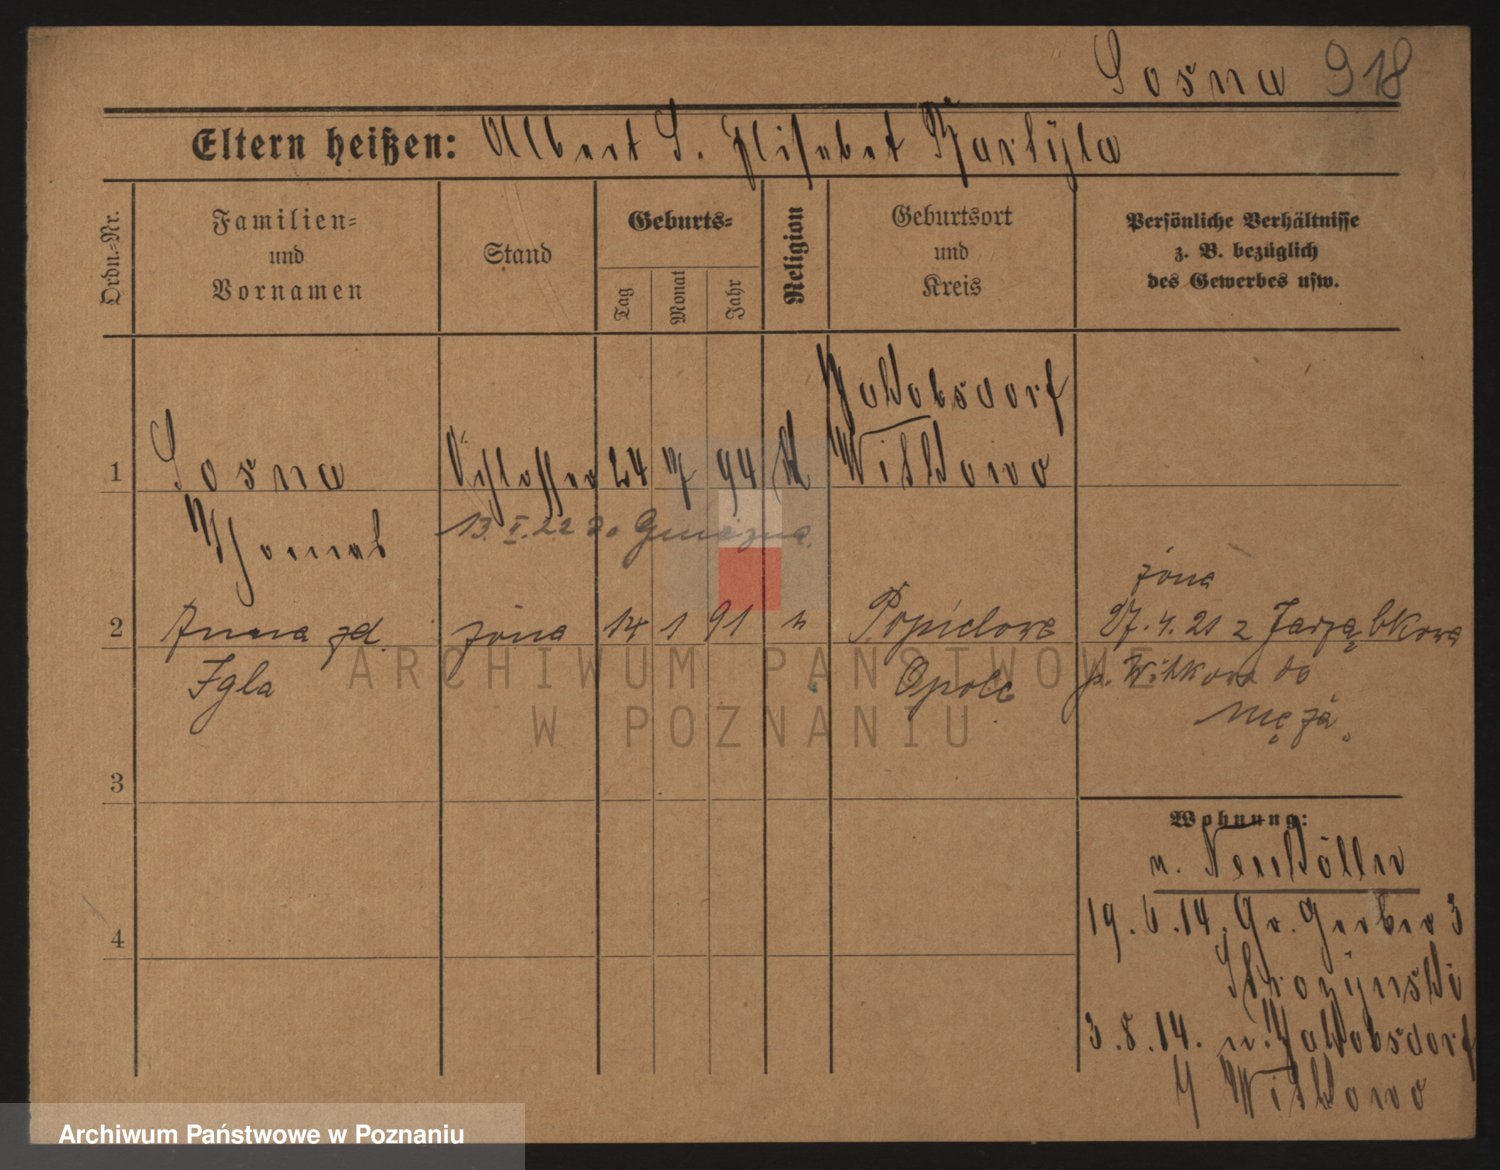 Sosna 918
Eltern heißen: Albert S. Elisabet Bartÿla
Ordn.-Nr.
Familien-
und
Vornamen
Stand
Geburts-
Tag
Monat
Jahr
Religion
Geburtsort
und
Kreis
Persönliche Verhältnisse
z. B. bezüglich
des Gewerbes usw.
Jakobsdorf
1 Sosna Schlosser 24 94 k Witkowo
Thomas
13. II. 22 do Gniezna.
żona
2 Anna zd. żona 14 1 91 Popielowo 27.4.21 z Jarząbkowa
Igla Opole p. Witkowo do
męża.
3
Wohnung:
n. Neukölln
4
19.6.14. Gr. Gerber 3
3.8.14. n. Jakobsdorf
Witkowo
ARCHIWUM PAŃSTWOWE
W POZNANIU
Archiwum Państwowe w Poznaniu